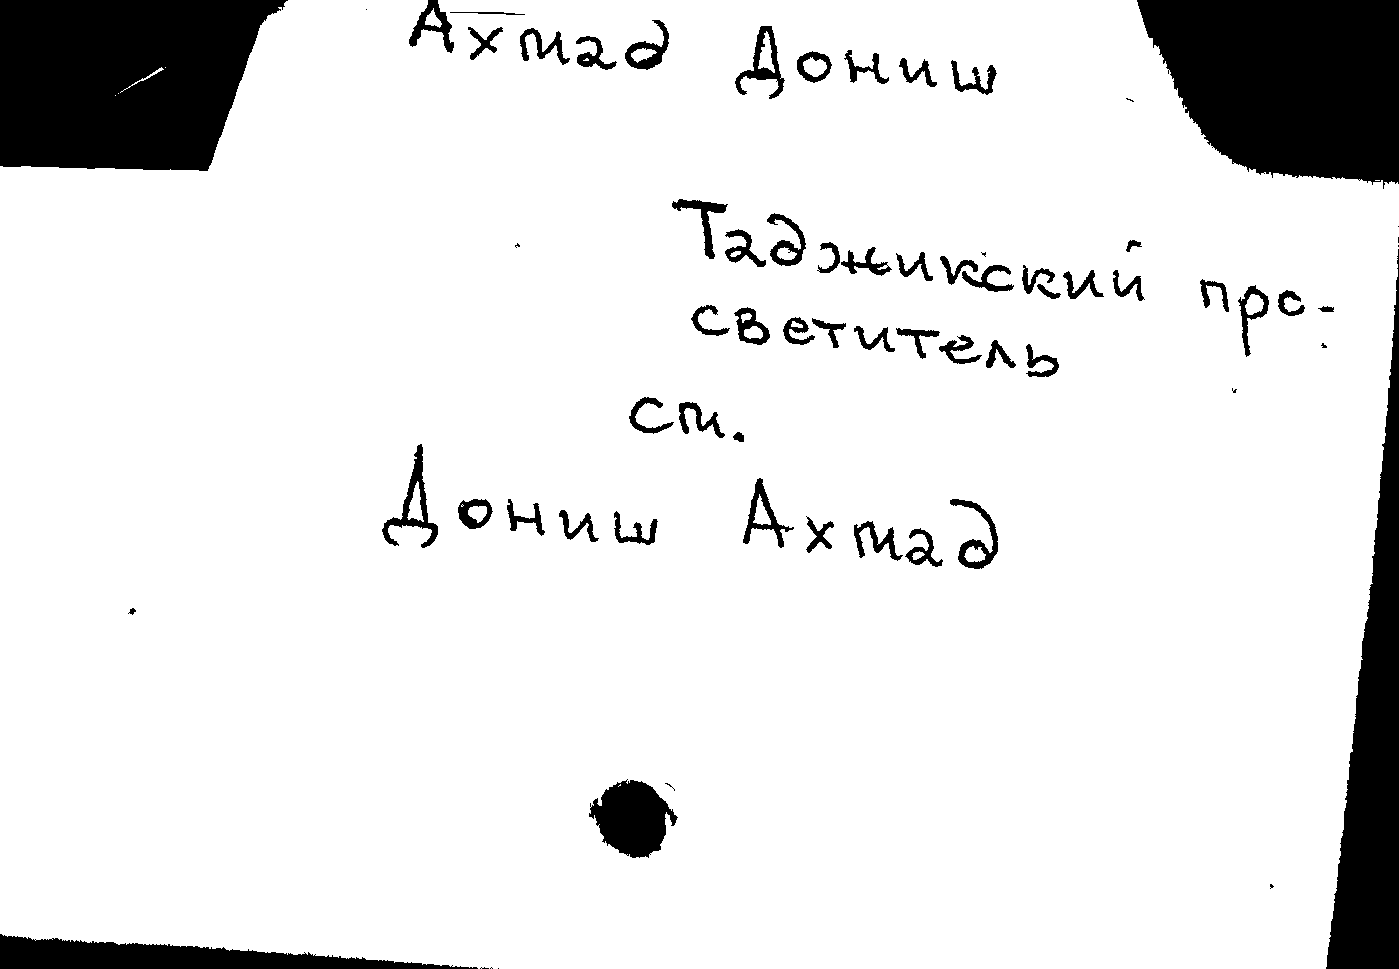 Ахмад Дониш
Таджикский про-
светитель
см.
Дониш Ахмад